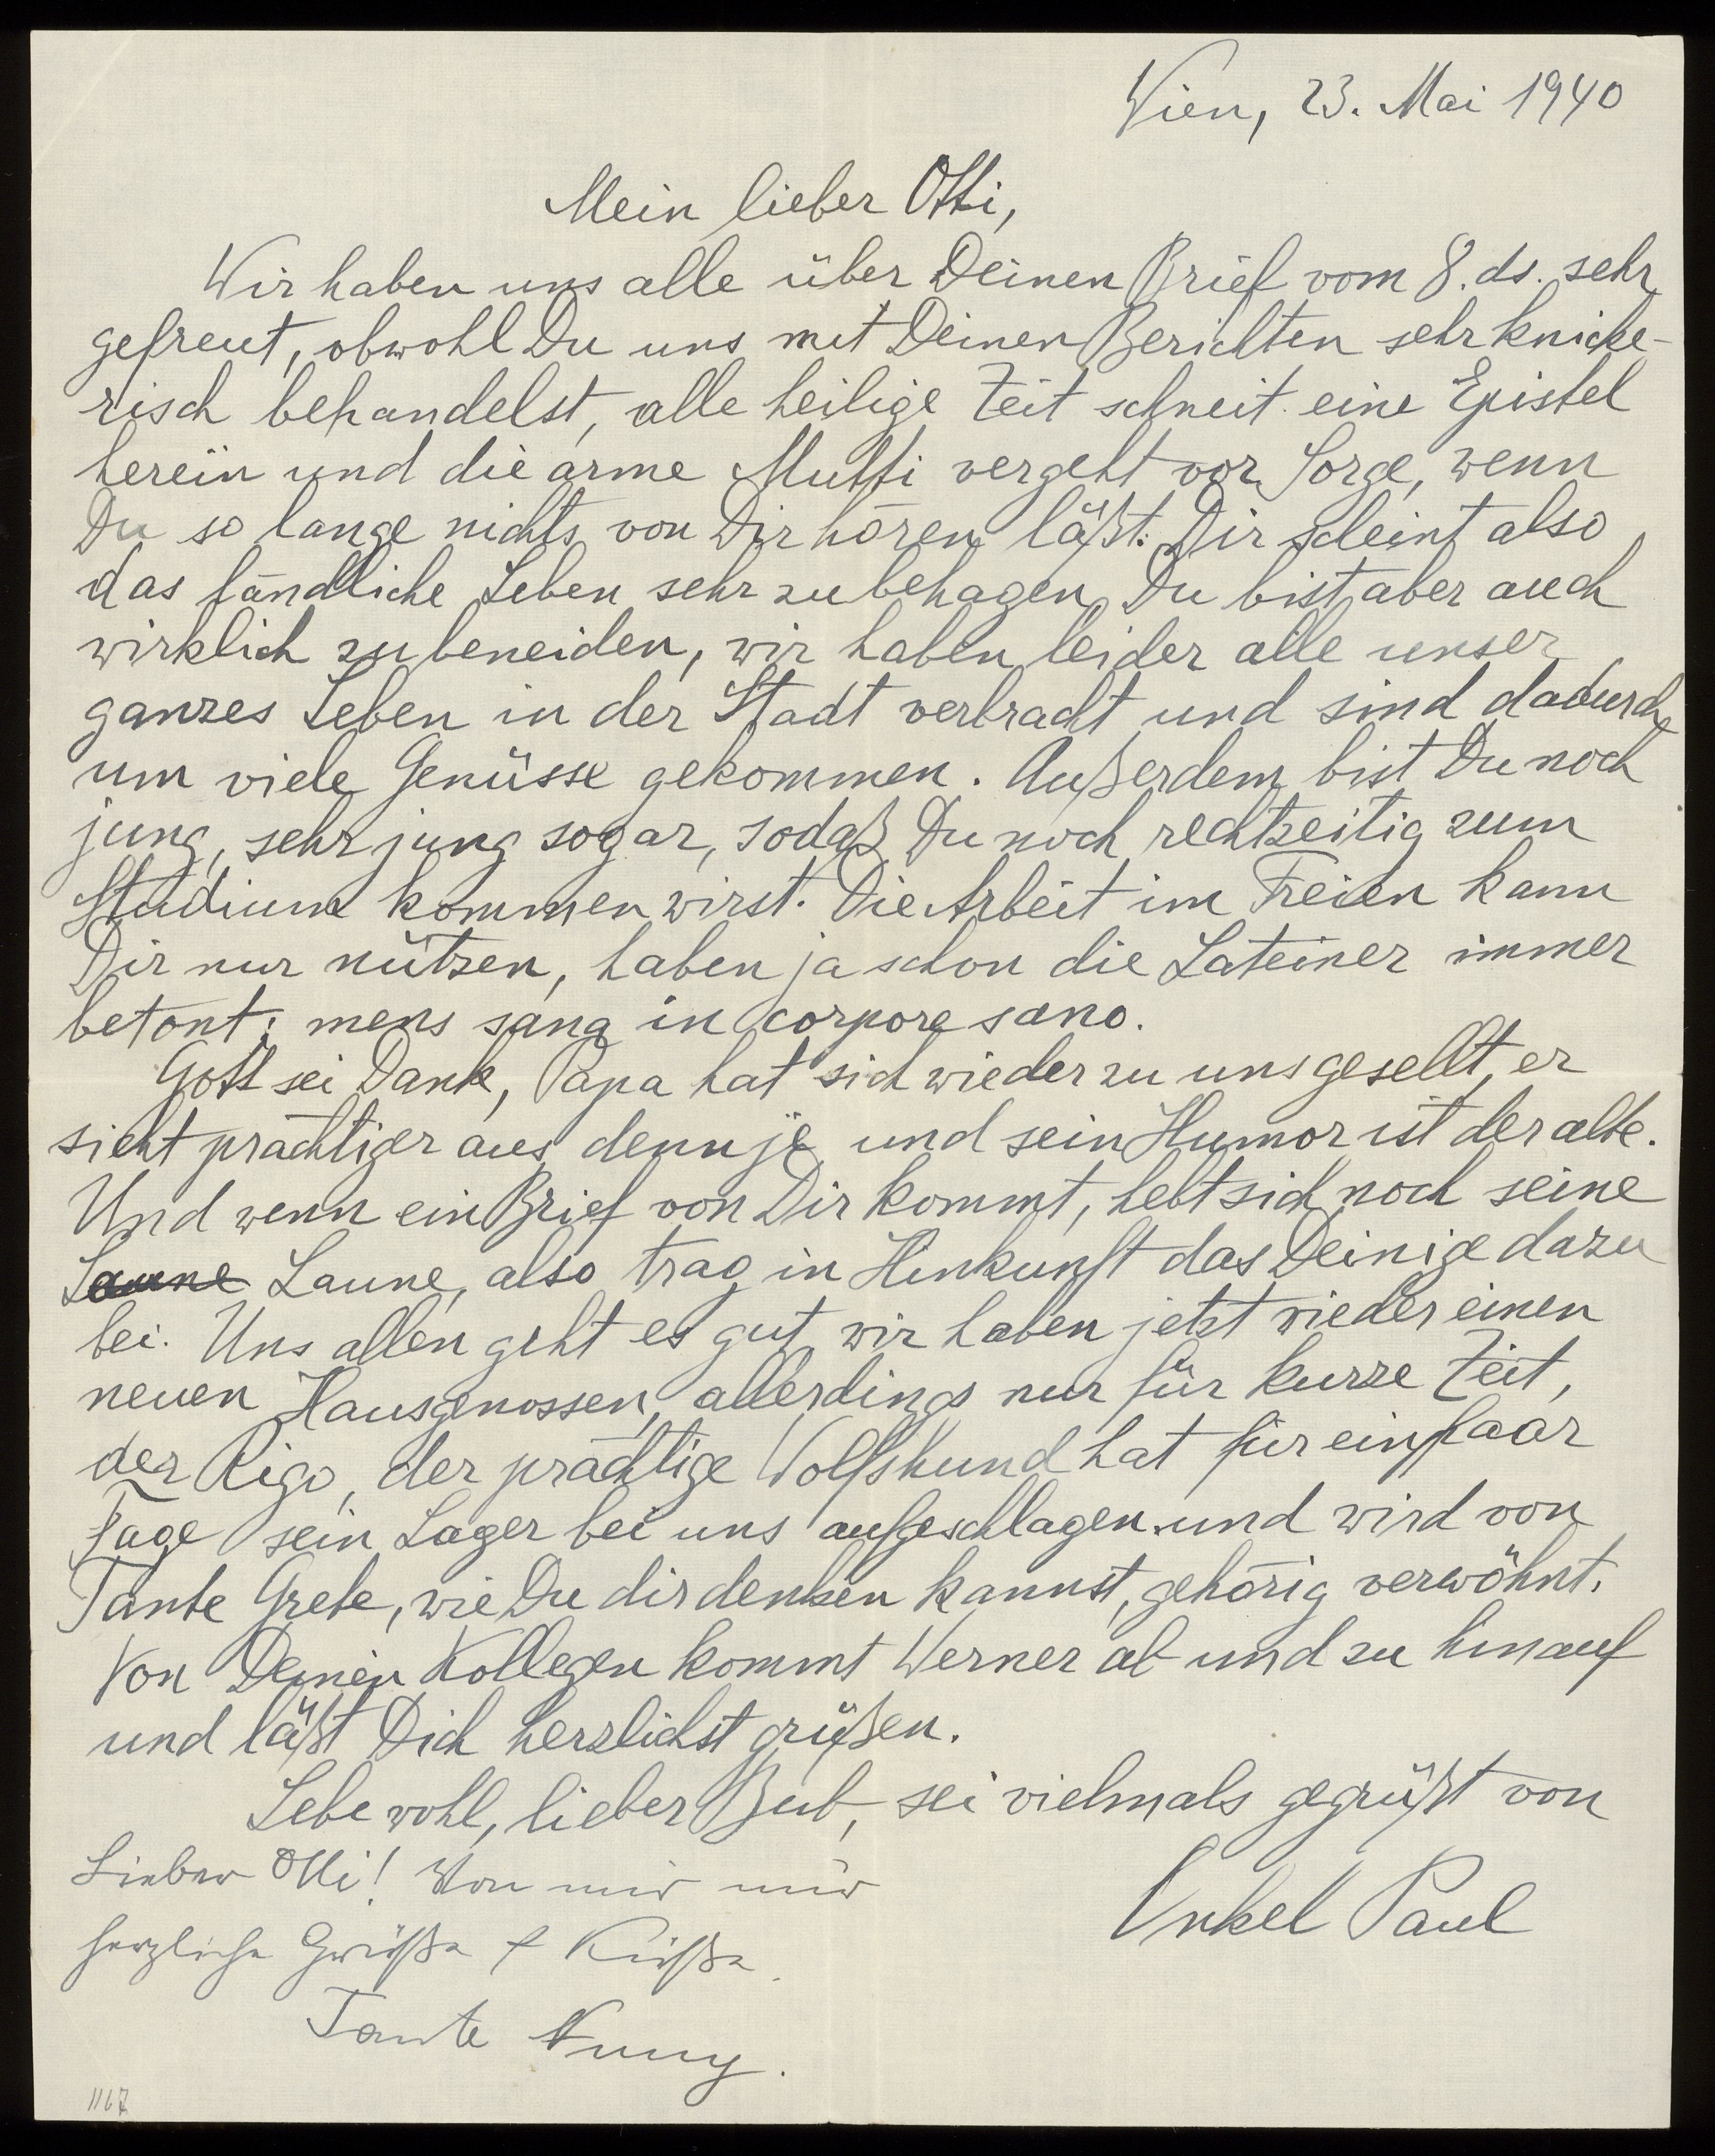 Wien, 23. Mai 1940
Mein lieber Otti,
Wir haben uns alle über Deinen Brief vom 8. ds. sehr
gefreut, obwohl Du uns mit Deinen Berichten sehr knicke-
risch behandelst, alle heilige Zeit schneit eine Epistel
herein und die arme Mutti vergeht vor Sorge, wenn
Du so lange nichts von Dir hören läßt. Dir scheint also
das ländliche Leben sehr zu behagen, Du bist aber auch
wirklich zu beneiden, wir haben leider alle unser
ganzes Leben in der Stadt verbracht und sind dadurch
um viele Genüsse gekommen. Außerdem bist Du noch
jung, sehr jung sogar, sodaß Du noch rechtzeitig zum
Studium kommen wirst. Die Arbeit im Freien kann
Dir nur nützen, haben ja schon die Lateiner immer
betont: mens sana in corpore sano.
Gott sei Dank, Papa hat sich wieder zu uns gesellt, er
sieht prächtiger aus denn je und sein Humor ist der alte.
Und wenn ein Brief von Dir kommt, hebt sich noch seine
Laune Laune, also trag in Hinkunft das Deinige dazu
bei. Uns allen geht es gut, wir haben jetzt wieder einen
neuen Hausgenossen, allerdings nur für kurze Zeit,
der Rigo, der prächtige Wolfshund hat für ein paar
Tage sein Lager bei uns aufgeschlagen und wird von
Tante Grete, wie Du dir denken kannst, gehörig verwöhnt.
Von Deinen Kollegen kommt Werner ab und zu hinauf
und läßt Dich herzlichst grüßen.
Lebe wohl, lieber Bub, sei vielmals gegrüßt von
Onkel Paul
Lieber Otti! Von mir nur
herzliche Grüße + Küße.
Tante Nuny.
1167